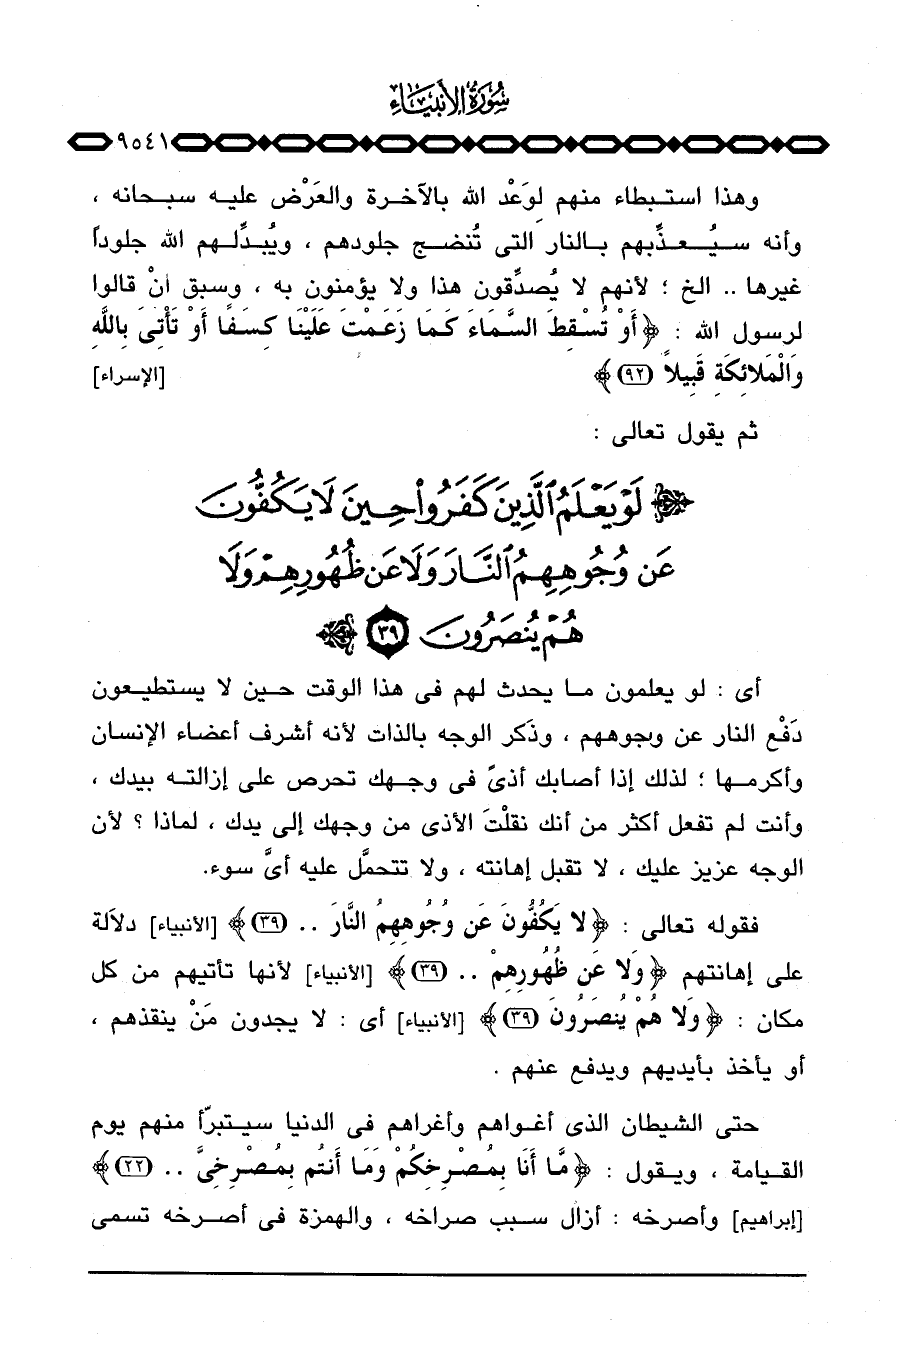 سُورَةُ الأَنبِيَاءِ
٩٥٤١
وهذا استبطاء منهم لوَعْد الله بالآخرة والعَرْض عليه سبحانه ،
وأنه سيُعذِّبهم بالنار التى تُنضج جلودهم ، ويُبدِّلهم الله جلوداً
غيرها .. الخ ؛ لأنهم لا يُصدِّقون هذا ولا يؤمنون به ، وسبق أنْ قالوا
لرسول الله : ﴿ أَوْ تُسْقِطَ السَّمَاءَ كَمَا زَعَمْتَ عَلَيْنَا كِسَفًا أَوْ تَأْتِيَ بِاللَّهِ
وَالْمَلائِكَةِ قَبِيلاً (٩٢) ﴾ [الإسراء]
ثم يقول تعالى :
﴿ لَوْ يَعْلَمُ ٱلَّذِينَ كَفَرُوا۟ حِينَ لَا يَكُفُّونَ
عَن وُجُوهِهِمُ ٱلنَّارَ وَلَا عَن ظُهُورِهِمْ وَلَا
هُمْ يُنصَرُونَ ٣٩ ﴾
أى : لو يعلمون ما يحدث لهم فى هذا الوقت حين لا يستطيعون
دَفْع النار عن وجوههم ، وذَكر الوجه بالذات لأنه أشرف أعضاء الإنسان
وأكرمها ؛ لذلك إذا أصابك أذىً فى وجهك تحرص على إزالته بيدك ،
وأنت لم تفعل أكثر من أنك نقلْتَ الأذى من وجهك إلى يدك ، لماذا ؟ لأن
الوجه عزيز عليك ، لا تقبل إهانته ، ولا تتحمَّل عليه أىَّ سوء.
فقوله تعالى : ﴿ لا يَكُفُّونَ عَن وُجُوهِهِمُ النَّارَ .. (٣٩) ﴾ [الأنبياء] دلالة
على إهانتهم ﴿ وَلا عَن ظُهُورِهِمْ .. (٣٩) ﴾ [الأنبياء] لأنها تأتيهم من كل
مكان : ﴿ وَلا هُمْ يُنصَرُونَ (٣٩) ﴾ [الأنبياء] أى : لا يجدون مَنْ ينقذهم ،
أو يأخذ بأيديهم ويدفع عنهم .
حتى الشيطان الذى أغواهم وأغراهم فى الدنيا سيتبرّأ منهم يوم
القيامة ، ويقول : ﴿ مَّا أَنَا بِمُصْرِخِكُمْ وَمَا أَنتُم بِمُصْرِخِيَّ .. (٢٢) ﴾
[إبراهيم] وأصرخه : أزال سبب صراخه ، والهمزة فى أصرخه تسمى